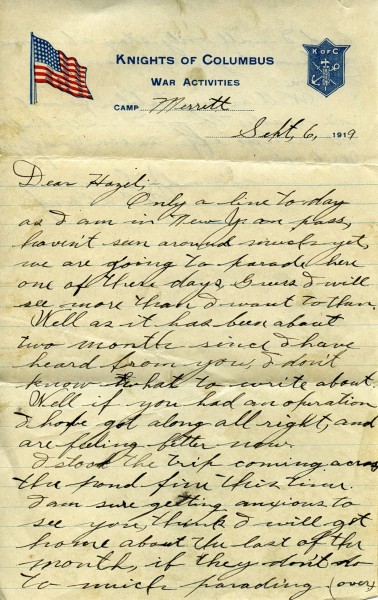 KNIGHTS OF COLUMBUS
K of C
WAR ACTIVITIES
CAMP Merritt
Sept, 6, 1919
Dear Hazel;
Only a line to day
as I am in New Y. on pass,
haven't seen around much yet,
we are going to parade here
one of these days, Guess I will
see more than I want to then.
Well as it has been about
two month since I have
heard from you, I don't
know what to write about.
Well if you had an operation
I hope got along all right, and
are feeling better now.
I stood the trip coming across
the pond fine this time.
I am sure getting anxious to
see you, think I will get
home about the last of the
month, if they don't do
to much parading (over)